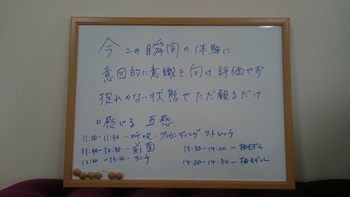 今この瞬間の体験に
意図的に意識を向け、評価せず
捉れのない状態でただ観るだけ
◎感じる 五感
11:00-11:30-呼吸 グランディング ストレッチ
11:30-12:30-前菌
12:30-13:30-ランチ
13:30-14:00-
14:00-14:30-